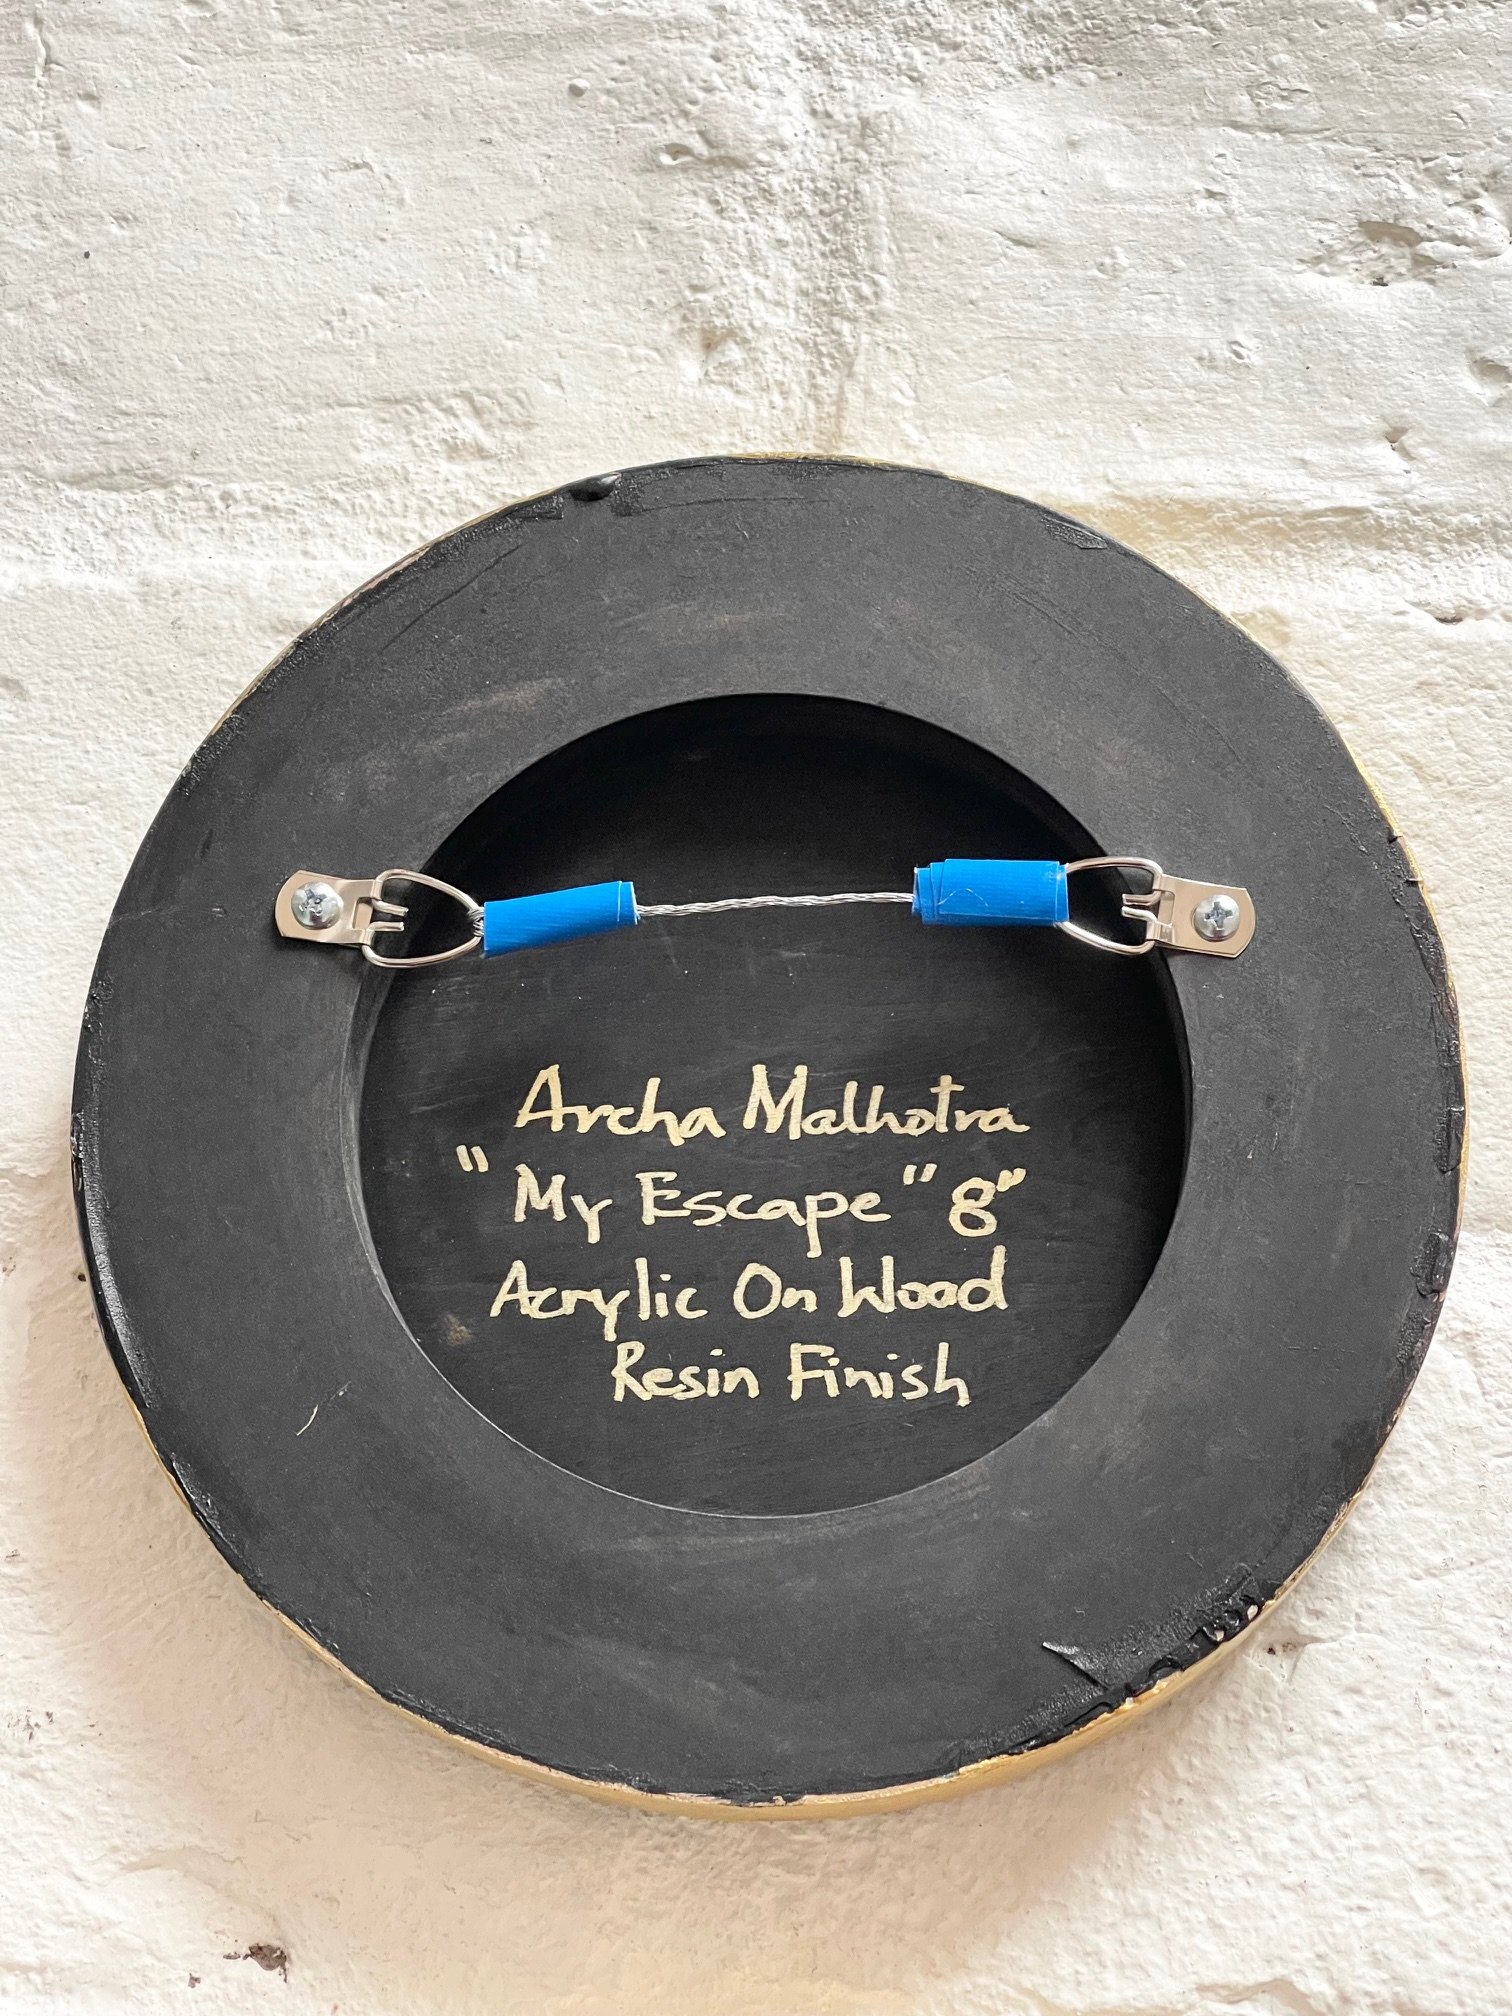 Archa Malhotra
"My Escape" 8"
Acrylic On Wood
Resin Finish